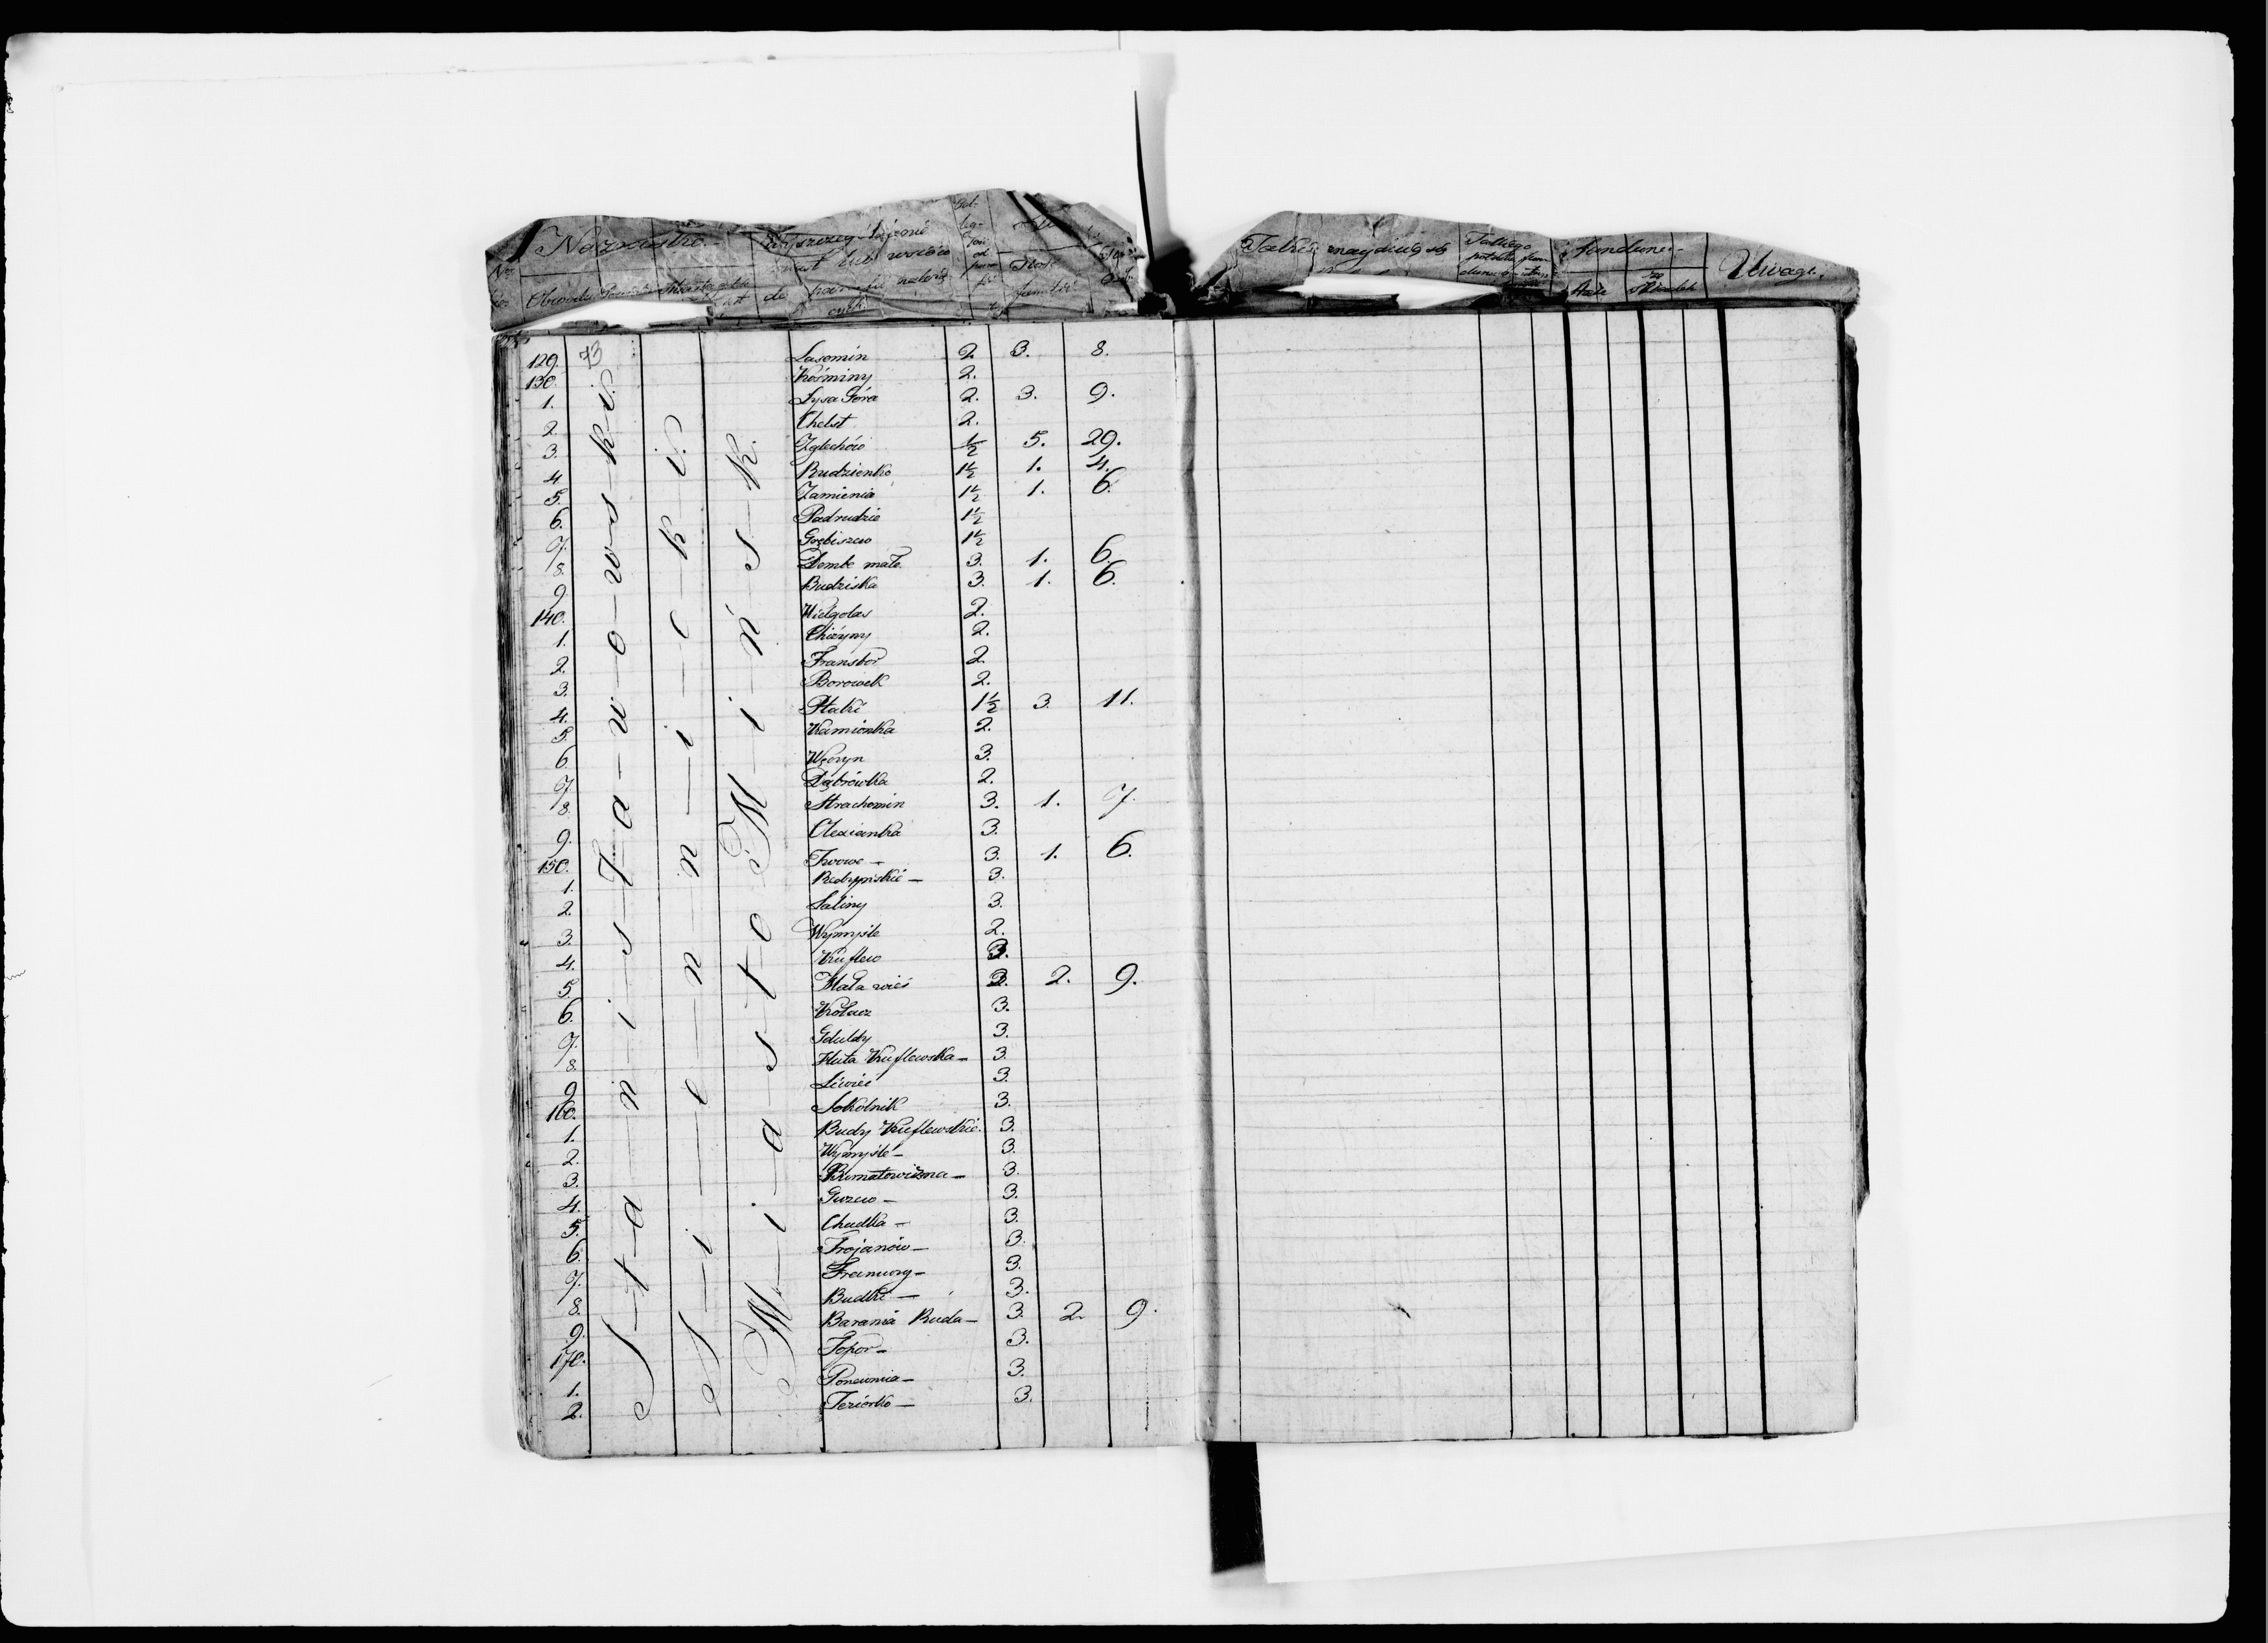 Nazwisko
Wyszczególnienie
miast lub wsiów
do parafii należą-
cych
Ilość
familii
Uwagi.
73
Stanisławowski.
Siennicki.
Miasto Mińsk.
129. Lasomin 2. 3. 8.
130. Kośminy 2.
1. Łysa Góra 2. 3. 9.
2. Chełst 2.
3. Zglechów 1/2 5. 29.
4. Rudzienko 1 1/2 1. 4.
5. Zamienie 1 1/2 1. 6.
6. Podrudzie 1 1/2
7. Grębiszew 1 1/2
8. Dembe małe 3. 1. 6.
9. Budziska 3. 1. 6.
140. Wielgolas 2.
1. Chiżyny 2.
2. Transbor 2.
3. Borowek 2.
4. Ptaki 1 1/2 3. 11.
5. Kamionka 2.
6. Wężyn 3.
7. Dąbrówka 2.
8. Strachomin 3. 1. 7.
9. Olexianka 3.
150. Iwowe 3. 1. 6.
1. Redzyńskie 3.
2. Łaliny 3.
3. Wymyśle 2.
4. Kuflew 3.
5. Mała wieś 3. 2. 9.
6. Kołacz 3.
7. Gduldy 3.
8. Huta Kuflewska 3.
9. Liwiec 3.
160. Sokolnik 3.
1. Budy Kuflewskie 3.
2. Wymyśle 3.
3. Rumatowizna 3.
4. Guzew 3.
5. Chudka 3.
6. Trojanów 3.
7. 3.
8. Budki 3.
9. Barania Ruda 3. 2. 9.
170. Topor 3.
1. Ponewnica 3.
2. Jeziorko 3.